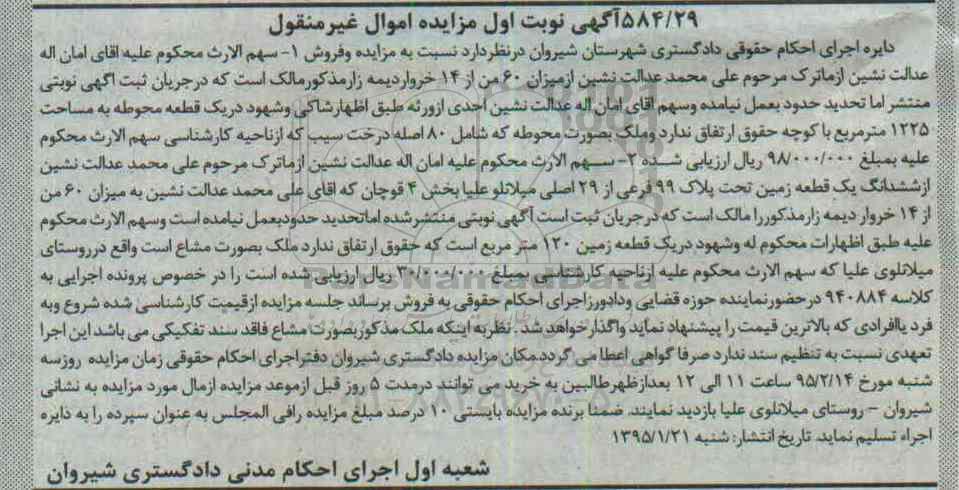 ۵۸۴/۲۹ آگهی نوبت اول مزایده اموال غیرمنقول
دایره اجرای احکام حقوقی دادگستری شهرستان شیروان درنظردارد نسبت به مزایده وفروش ۱- سهم الارث محکوم علیه اقای امان اله
عدالت نشین ازماترک مرحوم علی محمد عدالت نشین ازمیزان ۶۰ من از ۱۴ خرواردیمه زارمذکورمالک است که درجریان ثبت اگهی نوبتی
منتشر اما تحدید حدود بعمل نیامده وسهم اقای امان اله عدالت نشین احدی ازورثه طبق اظهارشاکی وشهود دریک قطعه محوطه به مساحت
۱۲۲۵ مترمربع با کوچه حقوق ارتفاق ندارد وملک بصورت محوطه که شامل ۸۰ اصله درخت سیب که ازناحیه کارشناسی سهم الارث محکوم
علیه بمبلغ ۹۸/۰۰۰/۰۰۰ ریال ارزیابی شده ۲- سهم الارث محکوم علیه امان اله عدالت نشین ازماترک مرحوم علی محمد عدالت نشین
ازششدانگ یک قطعه زمین تحت پلاک ۹۹ فرعی از ۲۹ اصلی میلانلو علیا بخش ۴ قوچان که اقای علی محمد عدالت نشین به میزان ۶۰ من
از ۱۴ خروار دیمه زارمذکوررا مالک است که درجریان ثبت است آگهی نوبتی منتشرشده اماتحدید حدودبعمل نیامده است وسهم الارث محکوم
علیه طبق اظهارات محکوم له وشهود دریک قطعه زمین ۱۲۰ متر مربع است که حقوق ارتفاق ندارد ملک بصورت مشاع است واقع درروستای
میلانلوی علیا که سهم الارث محکوم علیه ازناحیه کارشناسی بمبلغ ۳۰/۰۰۰/۰۰۰ ریال ارزیابی شده است را در خصوص پرونده اجرایی به
کلاسه ۹۴۰۸۸۴ درحضورنماینده حوزه قضایی ودادورزاجرای احکام حقوقی به فروش برساند جلسه مزایده ازقیمت کارشناسی شده شروع وبه
فرد یاافرادی که بالاترین قیمت را پیشنهاد نماید واگذارخواهد شد . نظربه اینکه ملک مذکوربصورت مشاع فاقد سند تفکیکی می باشد این اجرا
تعهدی نسبت به تنظیم سند ندارد صرفا گواهی اعطا می گردد.مکان مزایده دادگستری شیروان دفتراجرای احکام حقوقی زمان مزایده روزسه
شنبه مورخ ۹۵/۲/۱۴ ساعت ۱۱ الی ۱۲ بعدازظهرطالبین به خرید می توانند درمدت ۵ روز قبل ازموعد مزایده ازمال مورد مزایده به نشانی
شیروان - روستای میلانلوی علیا بازدید نمایند. ضمنا برنده مزایده بایستی ۱۰ درصد مبلغ مزایده رافی المجلس به عنوان سپرده را به دایره
اجراء تسلیم نماید. تاریخ انتشار: شنبه ۱۳۹۵/۱/۲۱
شعبه اول اجرای احکام مدنی دادگستری شیروان
ParsNamadData